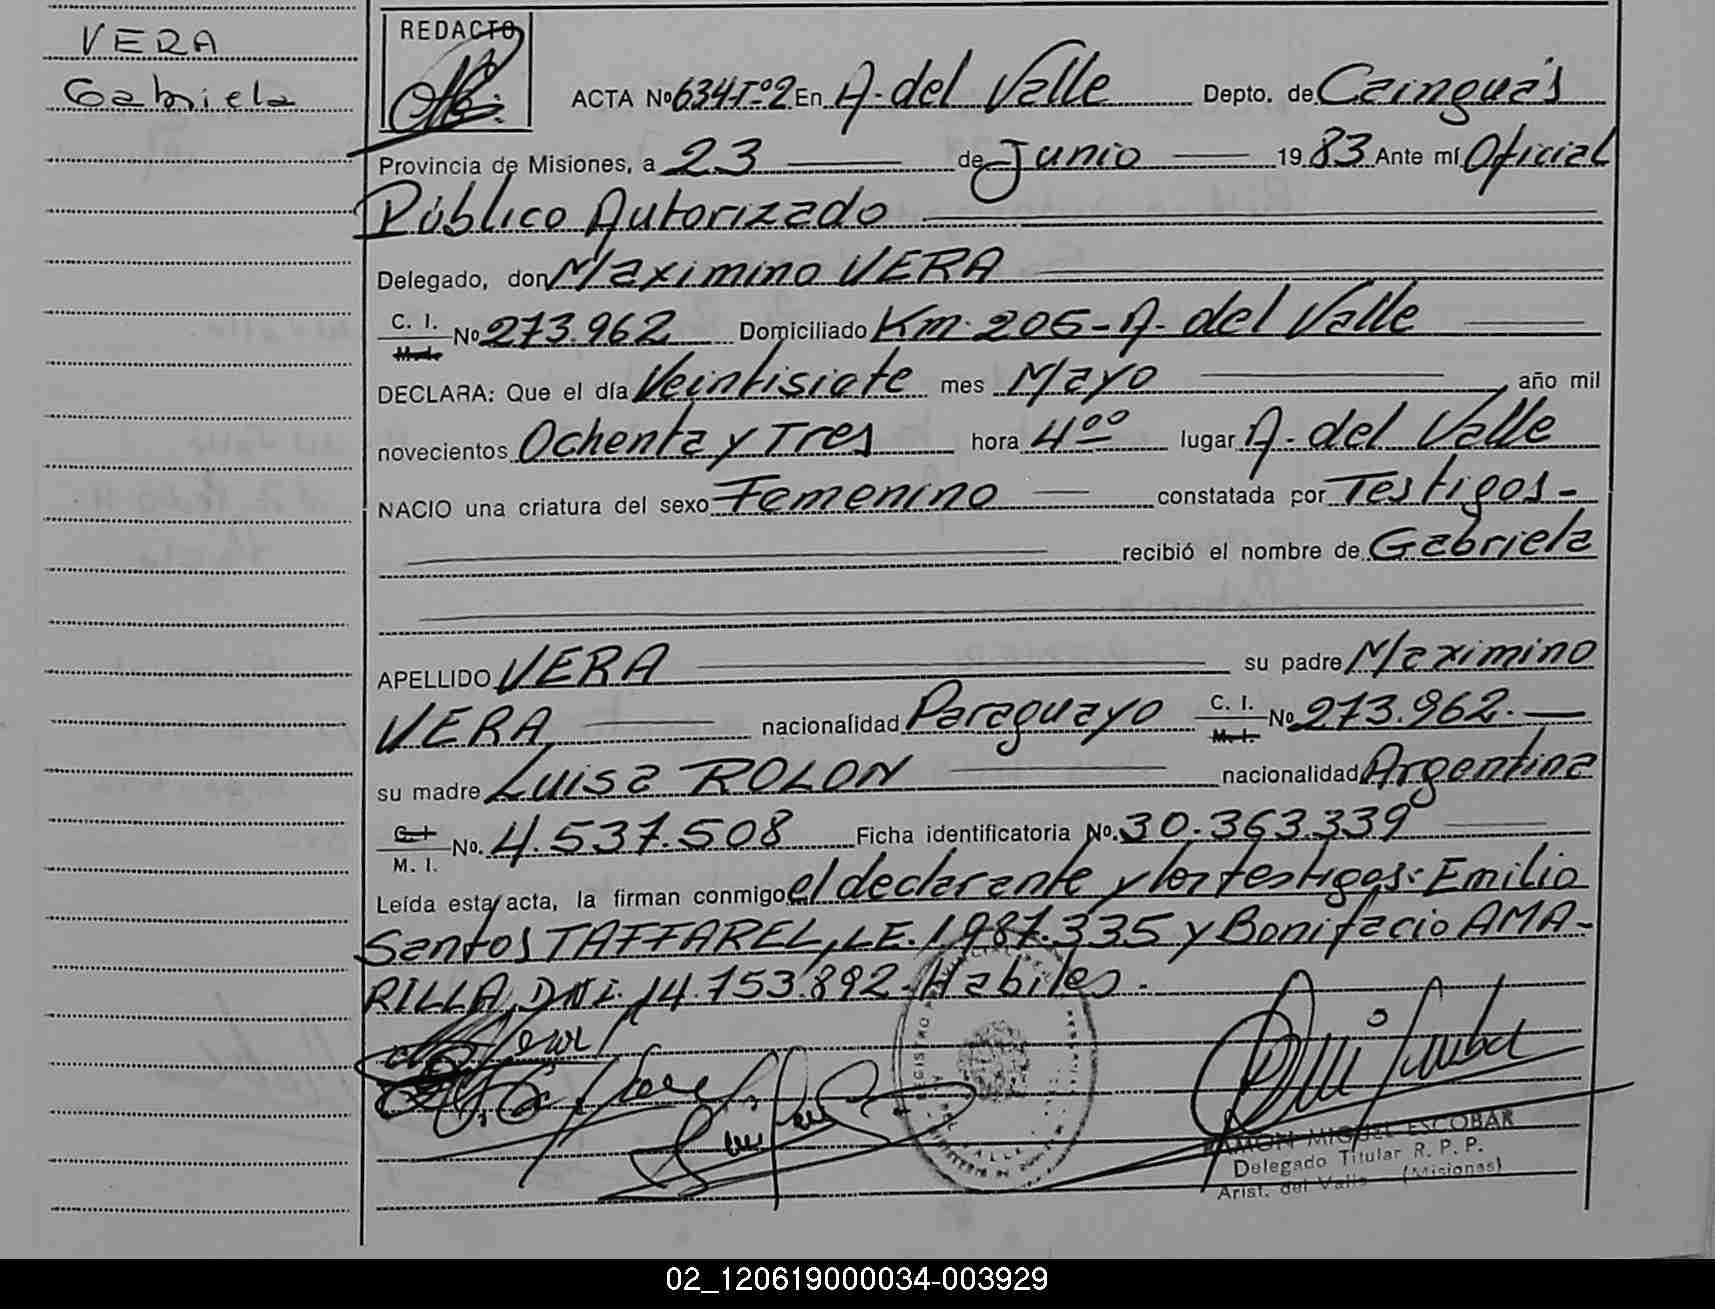 VERA
Gabriela
REDACTO
ACTA Nº 634-Tº2 En A. del Valle Depto. de Cainguás
Provincia de Misiones, a 23 de Junio 1983 Ante mí Oficial
Público Autorizado
Delegado, don Maximino VERA
C. I. M. I. Nº 273.962 Domiciliado Km. 205 - A. del Valle
DECLARA: Que el día Veintisiete mes Mayo año mil
novecientos Ochenta y Tres hora 4ºº lugar A. del Valle
NACIO una criatura del sexo Femenino constatada por Testigos-
recibió el nombre de Gabriela
APELLIDO VERA su padre Maximino
VERA nacionalidad Paraguayo C. I. M. I. Nº 273.962.
su madre Luisa ROLON nacionalidad Argentina
C. I. M. I. Nº. 4.537.508 Ficha identificatoria Nº. 30.363.339
Leída esta acta, la firman conmigo el declarante y los testigos: Emilio
Santos TAFFAREL, L.E. 1.987.335 y Bonifacio AMA-
RILLA, DNI. 14.753.892. Habiles.
RAMON MIGUEL ESCOBAR
Delegado Titular R. P. P.
Arist. del Valle (Misiones)
02_120619000034-003929